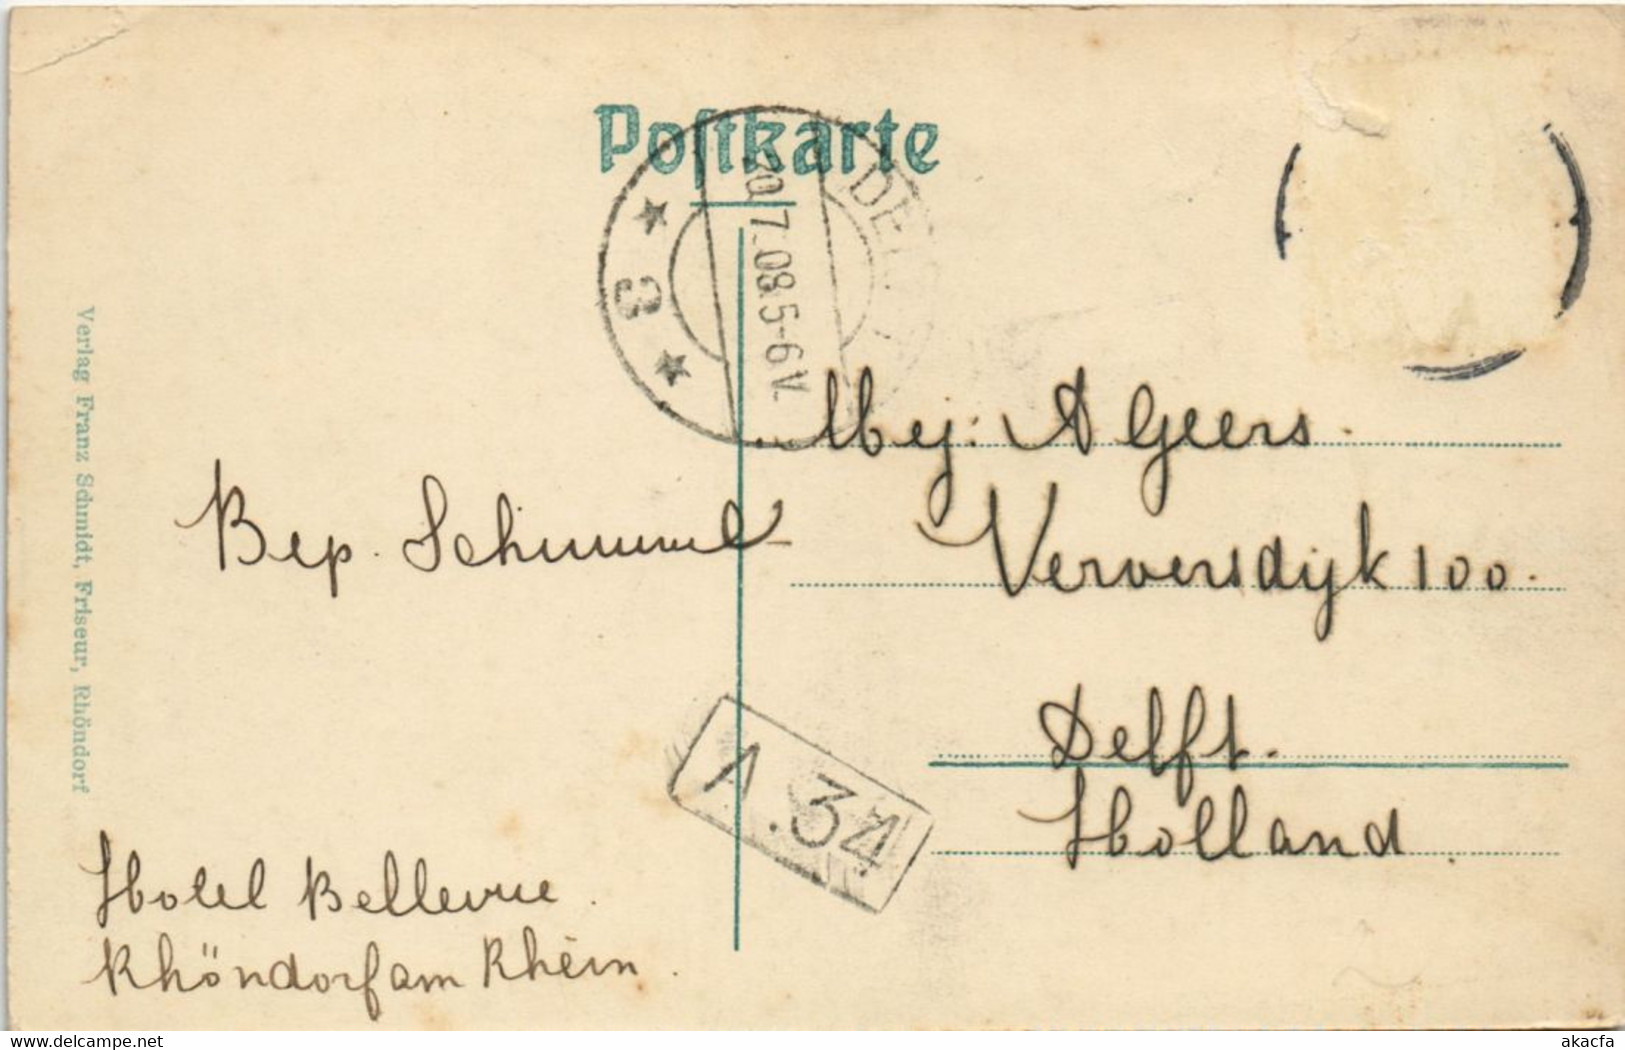 Postkarte
DE
30.7.08.5-6V.
3
Mej: A Geers.
Bep. Schimmel
Verversdijk 100.
Delft.
Holland.
A.34
Hotel Bellevue.
Rhöndorf am Rhein.
Verlag Franz Schmidt, Friseur, Rhöndorf
www.delcampe.net
akacfa